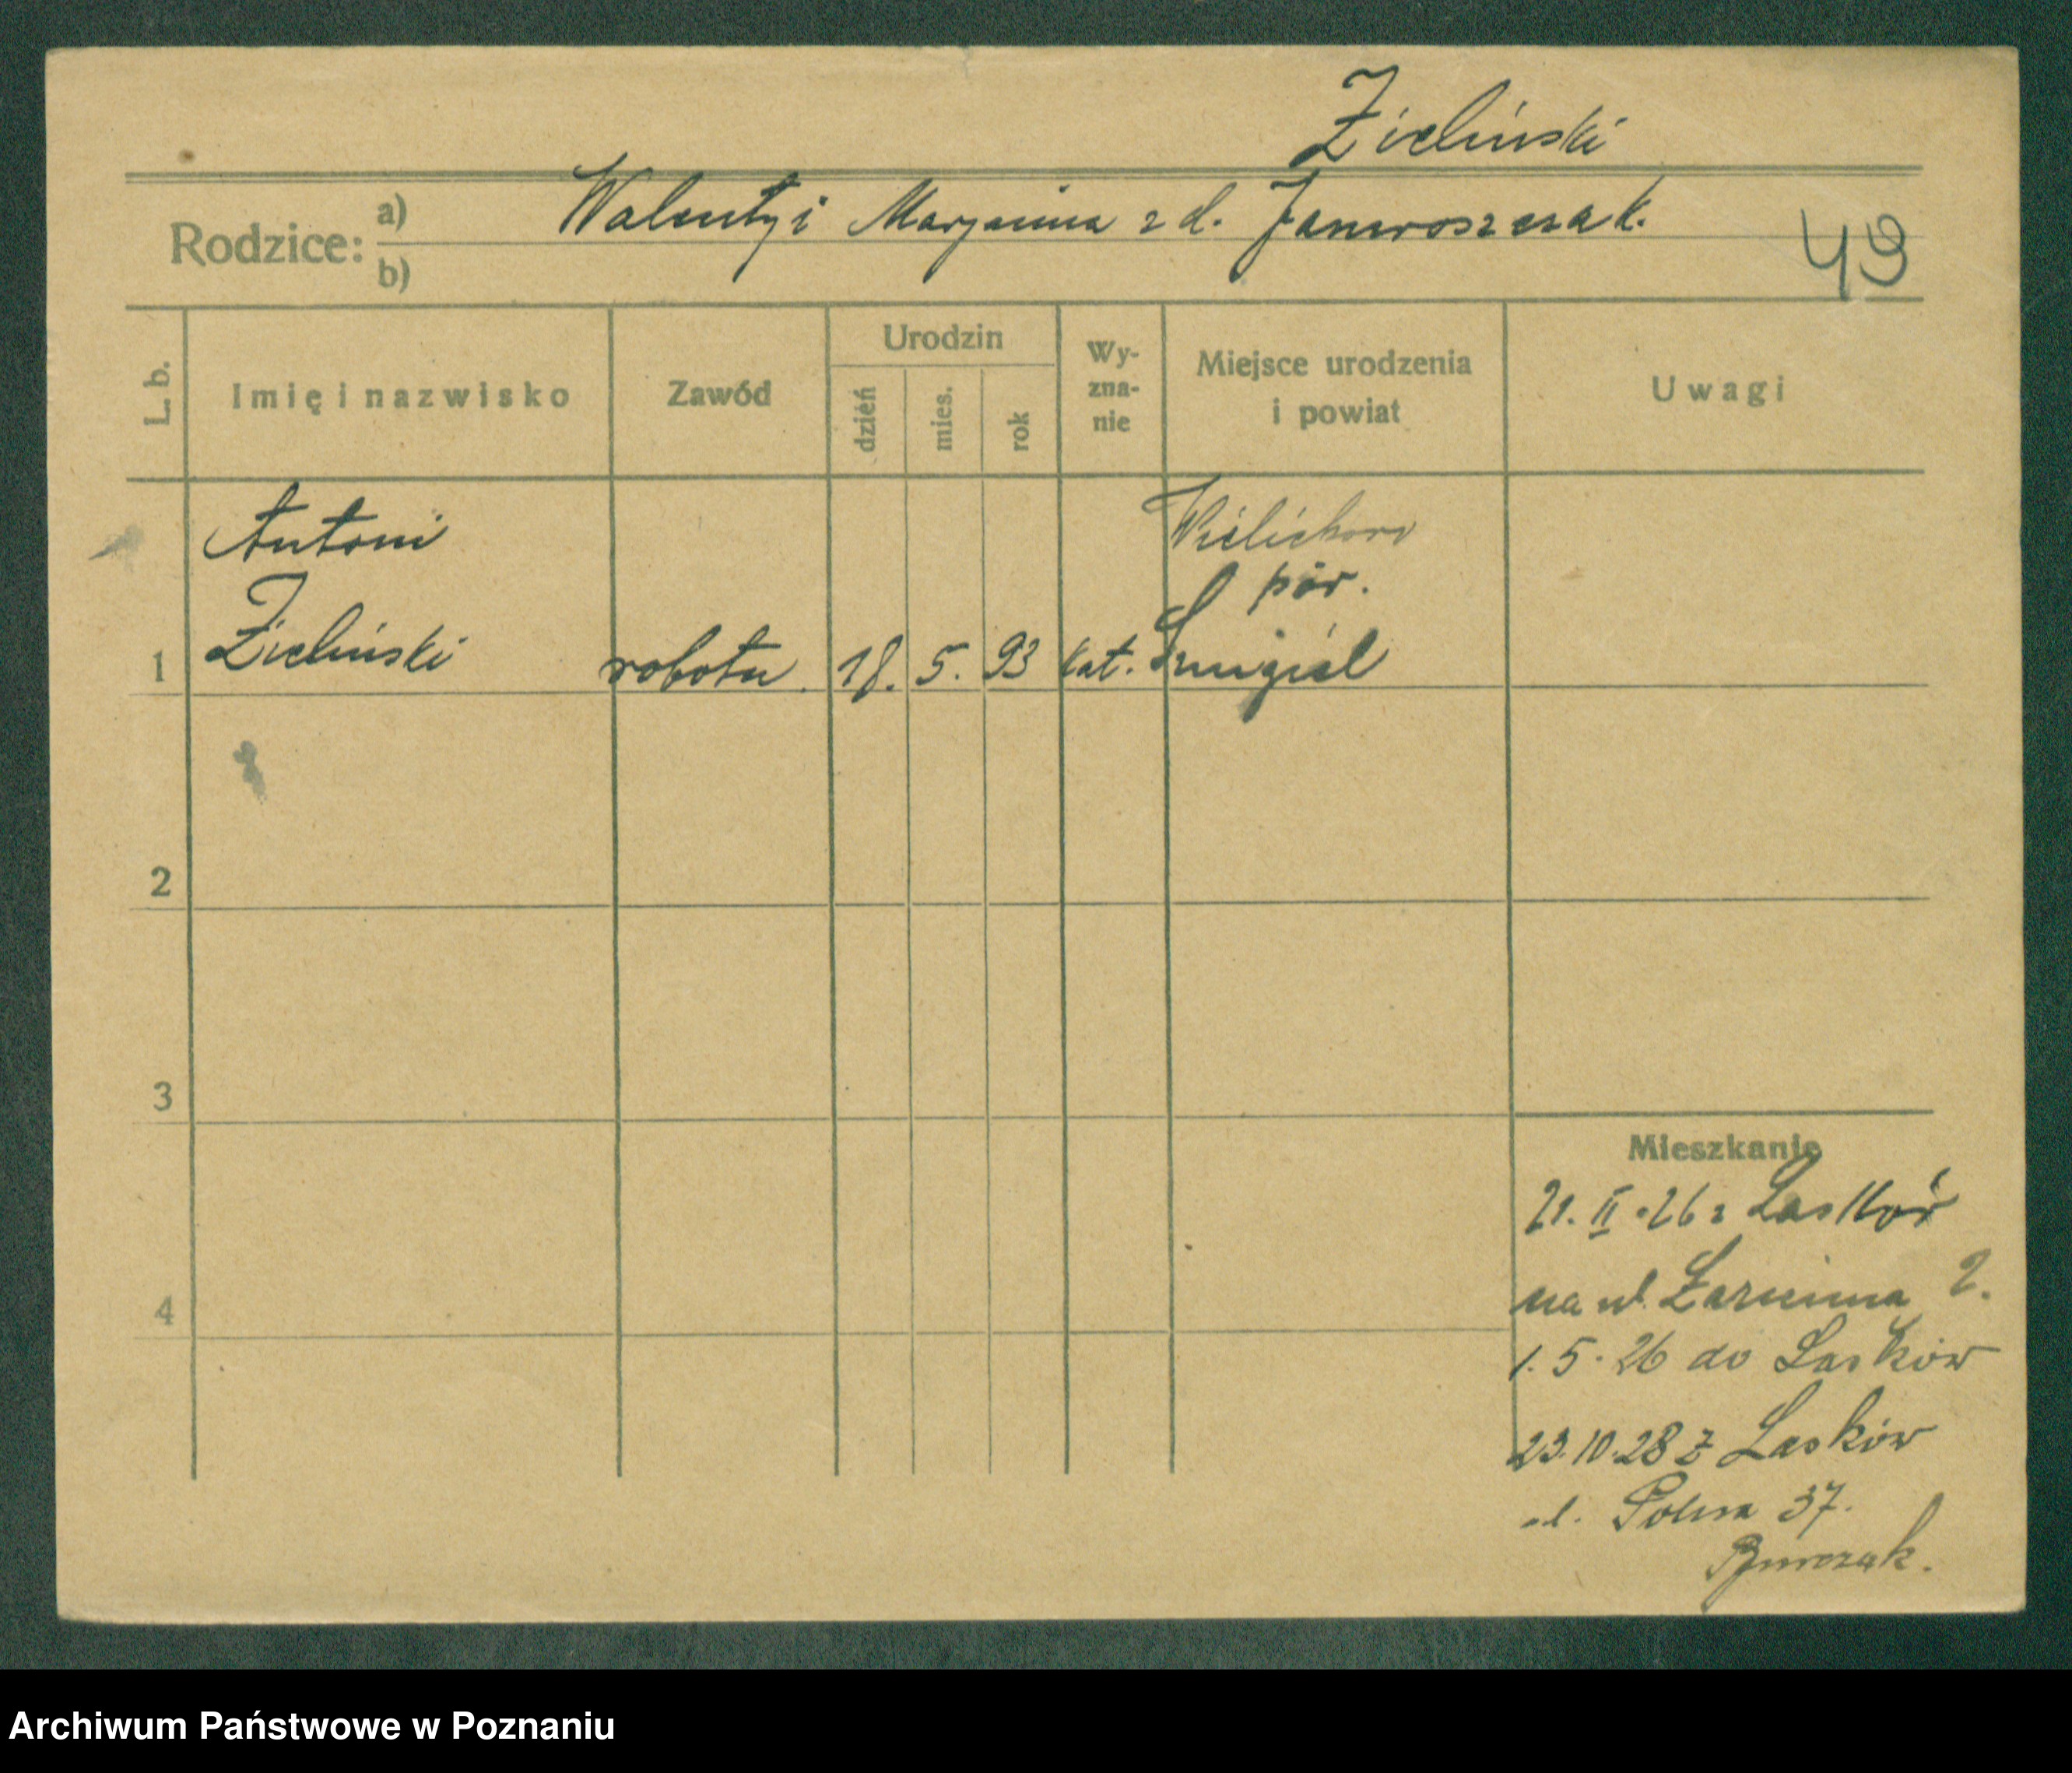 Zieliński
Rodzice: a) Walenty i Maryanna z d.
b)
49
L. b.
Imię i nazwisko
Zawód
Urodzin
dzień
mies.
rok
Wy-
zna-
nie
Miejsce urodzenia
i powiat
Uwagi
Antoni
Wielichowo
pow.
1 Zieliński robotn. 18. 5. 93 kat. Szmigiel
2
3
4
Mieszkanie
21. II. 26 z Lasków
na ul. 2.
1. 5. 26 do Lasków
23.10.28 z Lasków
ul. Polna 37.
Archiwum Państwowe w Poznaniu